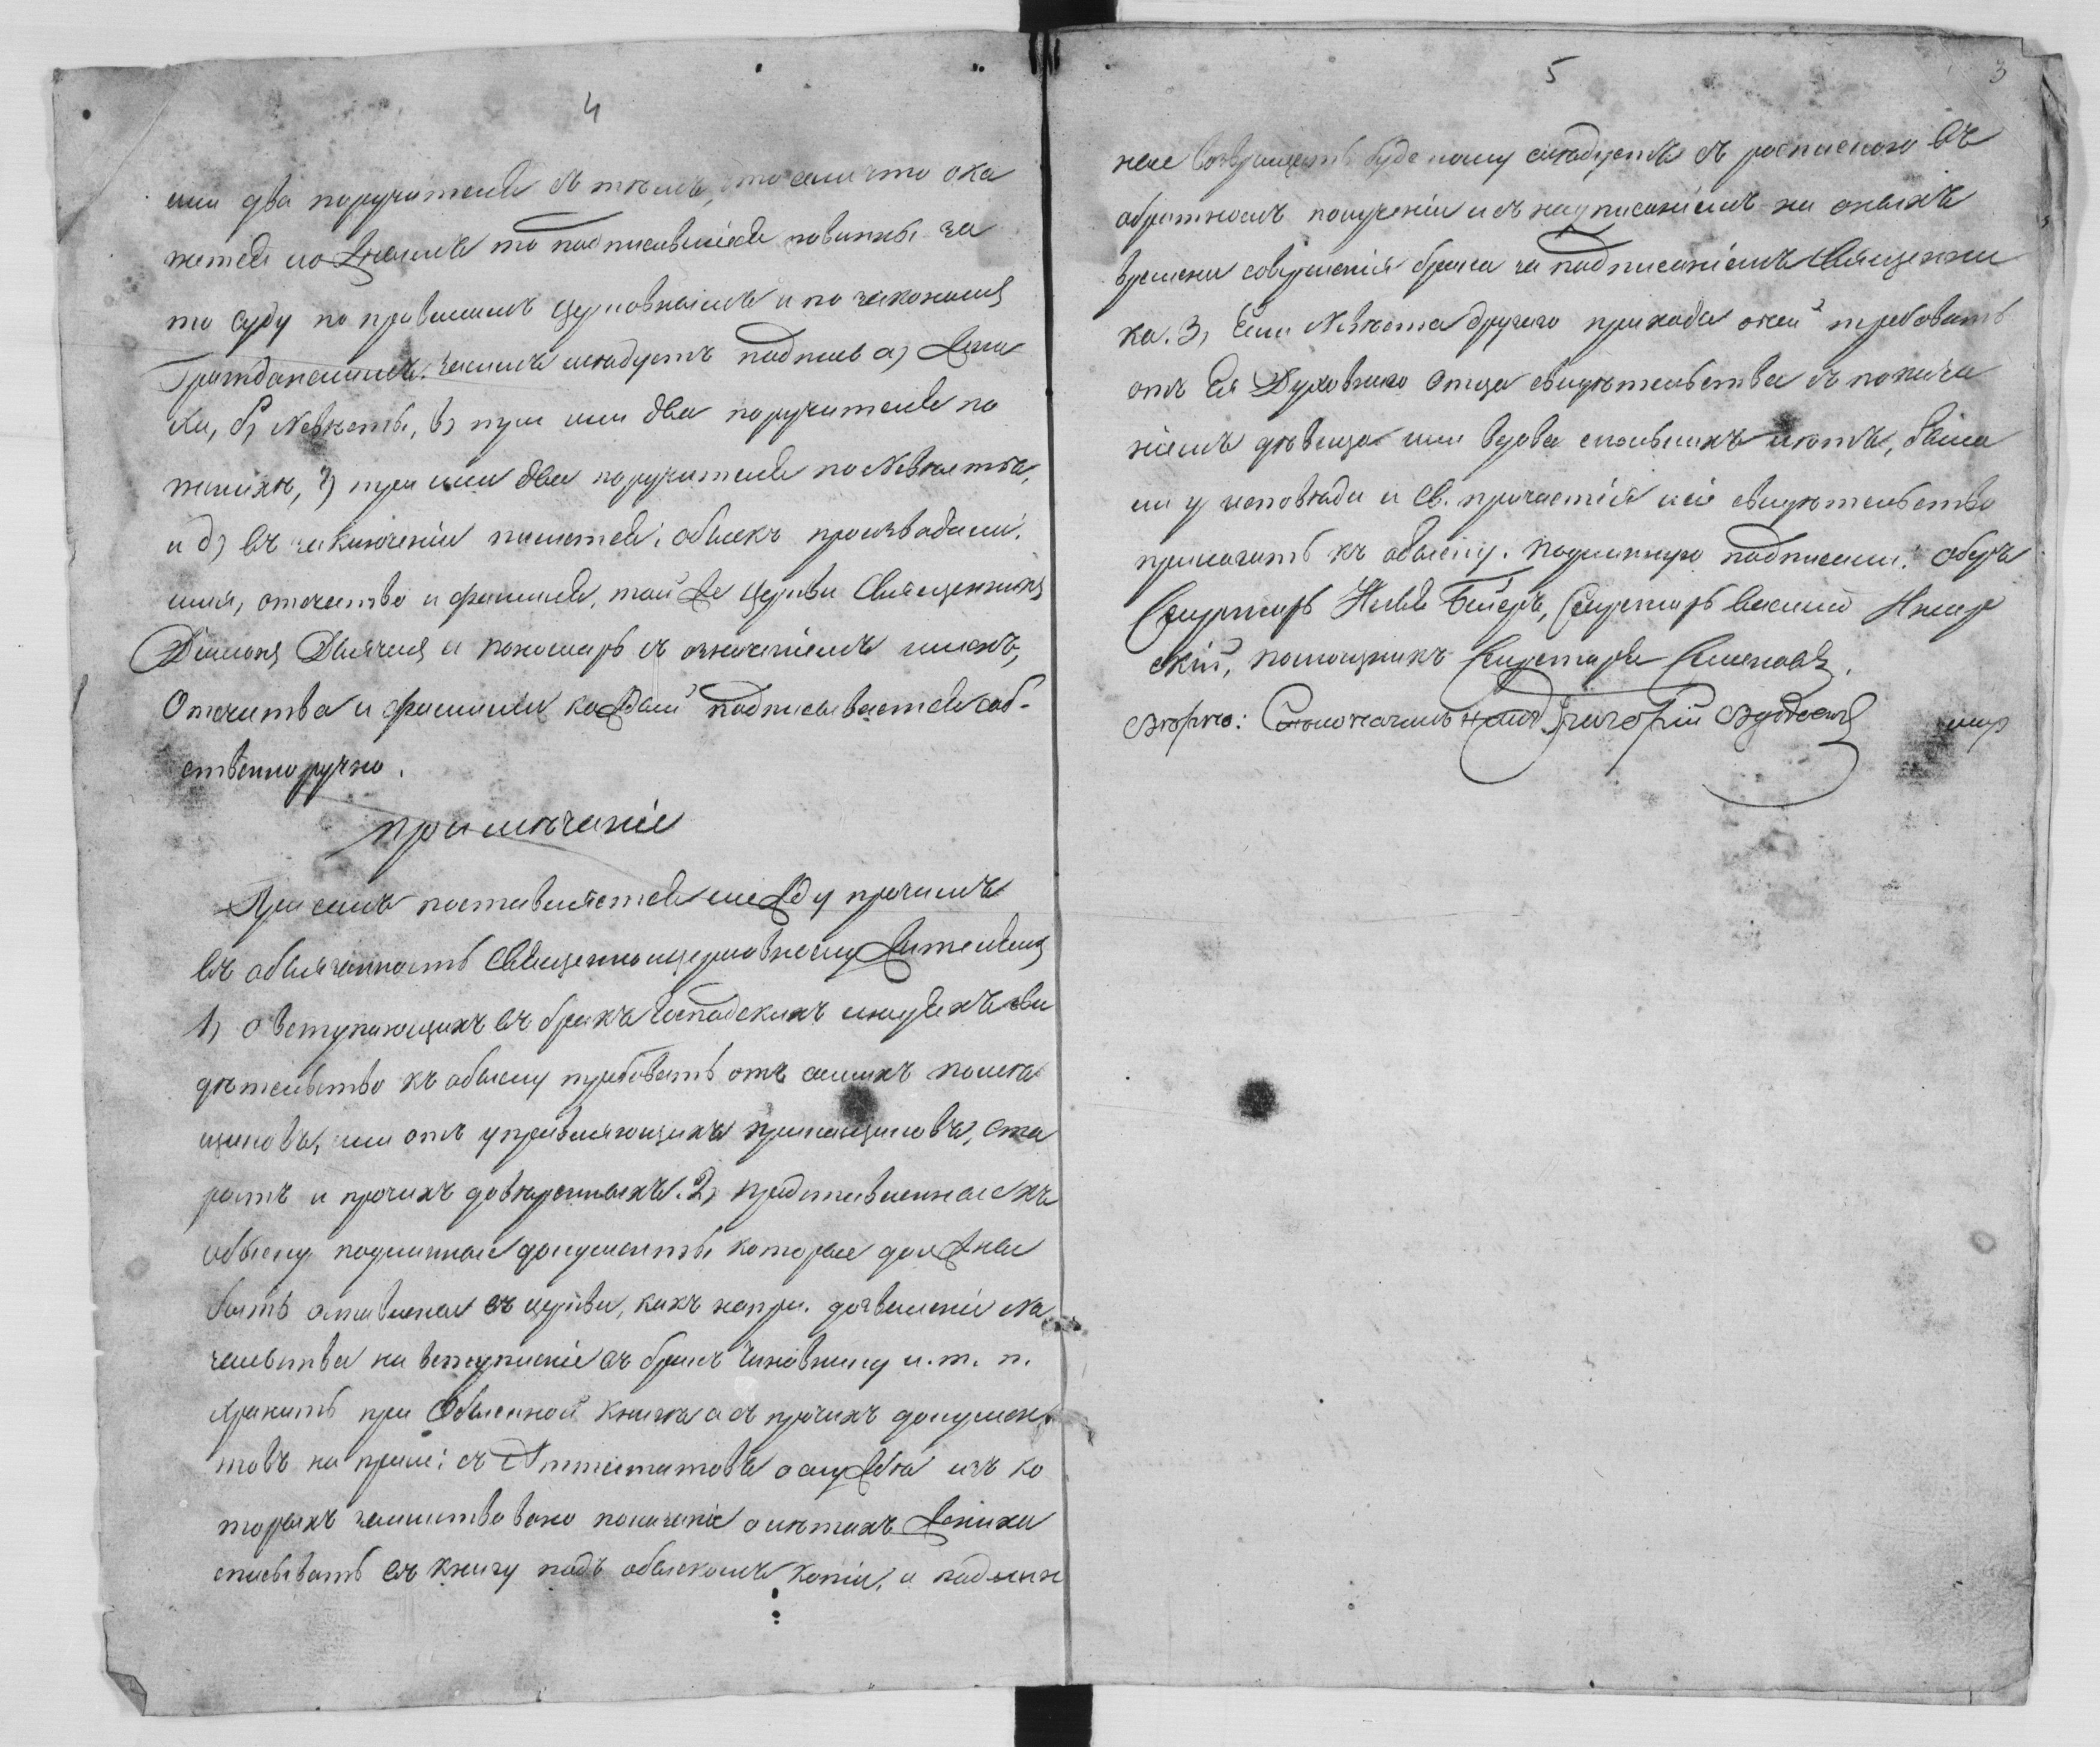 4
или два поручителя въ томъ, что если что ока
жется ложнымъ то подписавшіеся повинны за
то суду по правиламъ церковнымъ и по законамъ
Гражданскимъ. засимъ слѣдуетъ подпись а) Жени
ха, б) Невѣсты, в) три или два поручителя по
женихѣ, г) три или два поручителя по Невѣстѣ,
и д) въ заключеніи пишется: обыскъ производили:
имя, отечество и фамилія, той же церкви Священникъ
Діаконъ Дьячекъ и пономарь съ означеніемъ именъ,
Отечества и фамиліи каждой подписывается соб-
ственноручно.
примѣчаніе
При семъ поставляется между прочимъ
въ обязанность Священноцерковнослужителямъ
1) о вступающихъ въ бракъ Господскихъ людяхъ сви
дѣтельство къ обыску требовать отъ самихъ помѣ
щиковъ, или отъ управляющихъ прикащиковъ, ста
ростъ и прочихъ довѣренныхъ. 2) представленные къ
обыску подлинные документы которые должны
быть оставлены въ церкви, какъ напри. дозволеніе На
чальства на вступленіе въ бракъ Чиновнику и. т. п.
хранить при Обыскной книгѣ а съ прочихъ докумен
товъ на прим: съ Аттестатовъ о службѣ изъ ко
торыхъ заимствовано показаніе о лѣтахъ Жениха
списывать въ книгу подъ обыскомъ копіи, а подлин
5
3
ные возвращать куда кому слѣдуетъ съ роспискою въ
обратномъ полученіи и съ надписаніемъ на оныхъ
времени совершенія брака за подписаніемъ Священни
ка. 3) Если Невѣста другого прихода о ней требовать
отъ Ея Духовнаго Отца свидѣтельства съ показа
ніемъ дѣвица или вдова сколькихъ лѣтъ, была
ли у исповѣди и Св. причастія и сіе свидѣтельство
прилагать къ обыску. подлинную подписали: Оберъ
Секретарь Секретарь Василій
скій, помощникъ Секретаря Семеновъ.
вѣрно: Столоначальникъ Григорій